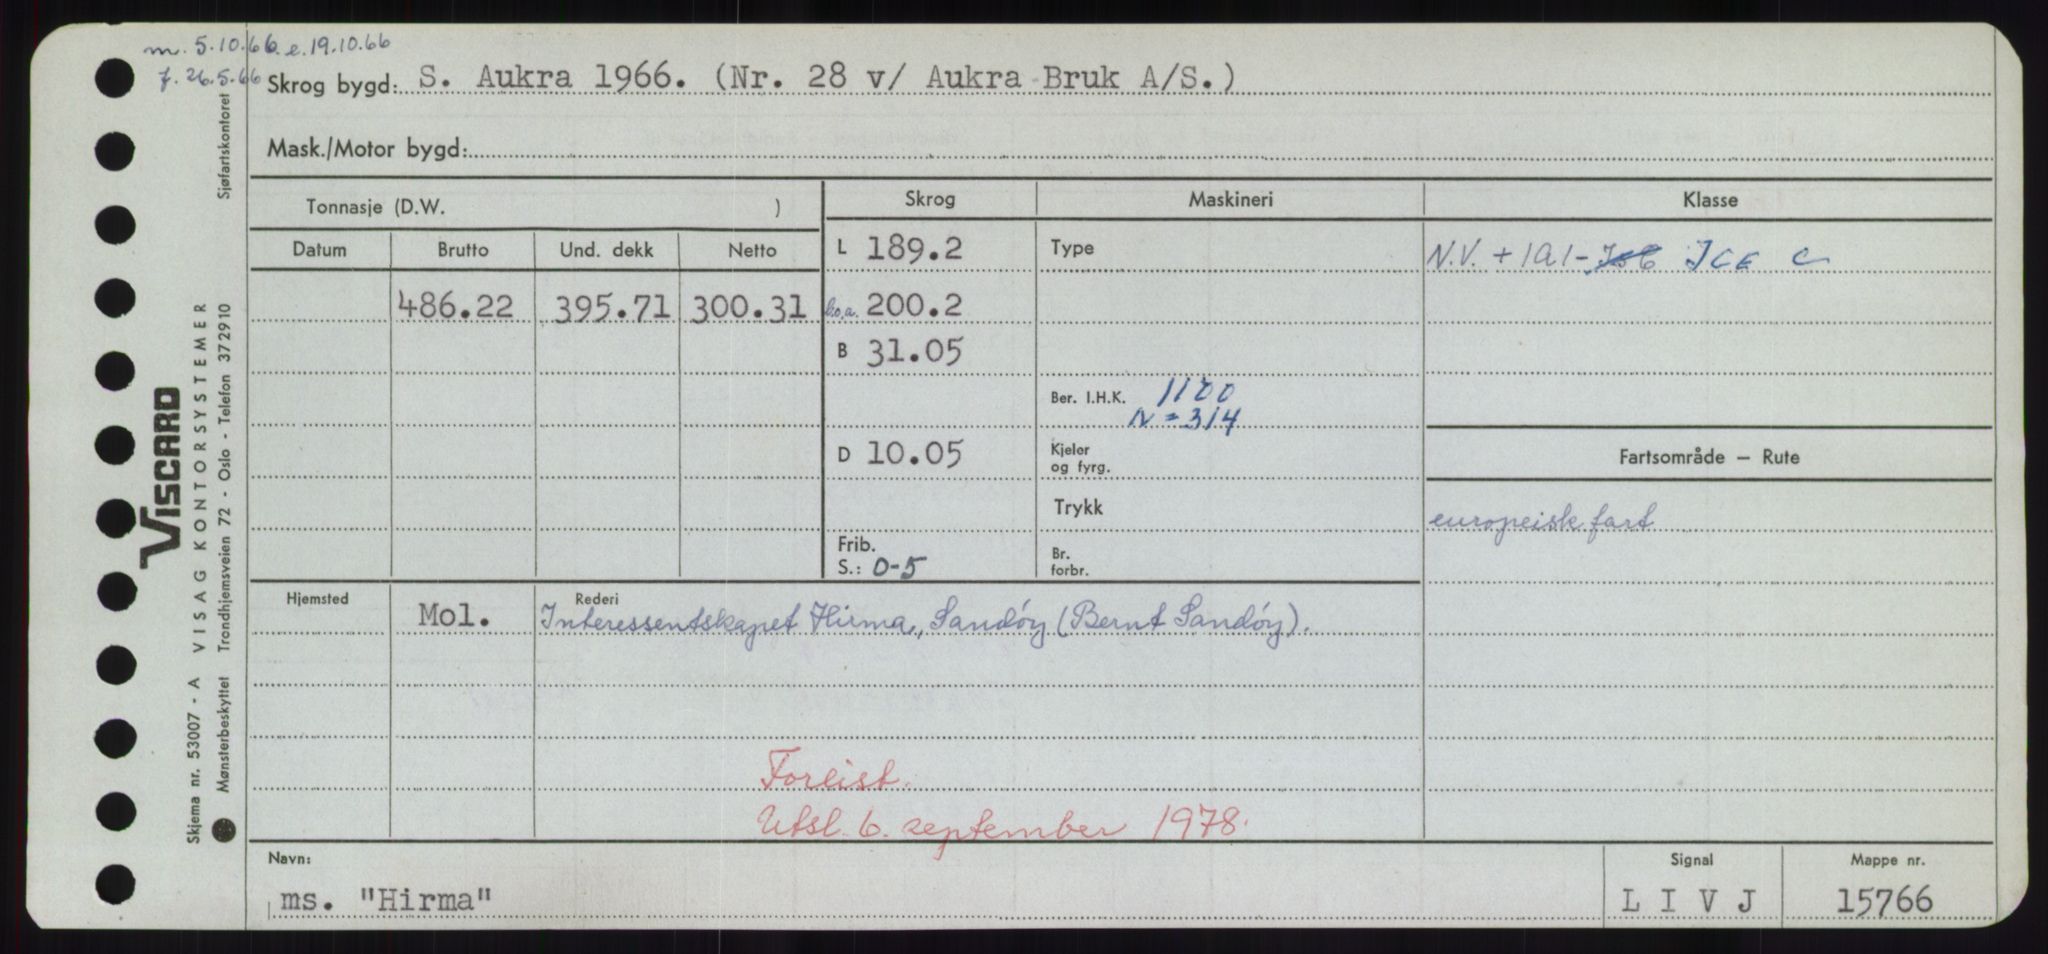 m. 5.10.66. e. 19.10.66
f. 26.5.66
Skrog bygd: S. Aukra 1966. (Nr. 28 v/ Aukra Bruk A/S.)
Mask./Motor bygd:
Tonnasje (D.W. )
Skrog Maskineri Klasse
Datum Brutto Und. dekk Netto
L 189.2 Type N.V. + 1A1 - ICE C
486.22 395.71 300.31 l.o.a. 200.2
B 31.05
Ber. I.H.K. 1100
N = 314
D 10.05 Kjeler og fyrg. Fartsområde — Rute
Trykk europeisk fart
Frib. S.: 0-5 Br. forbr.
Hjemsted Mol. Rederi Interessentskapet Hirma, Sandöy (Bernt Sandöy).
Forlist.
Utsl. 6. september 1978.
Navn: Signal Mappe nr.
ms. "Hirma" L I V J 15766
VISCARD
VISAG KONTORSYSTEMER
Skjema nr. 53007 - A
Mønsterbeskyttet Trondhjemsveien 72 - Oslo - Telefon 372910 Sjøfartskontoret